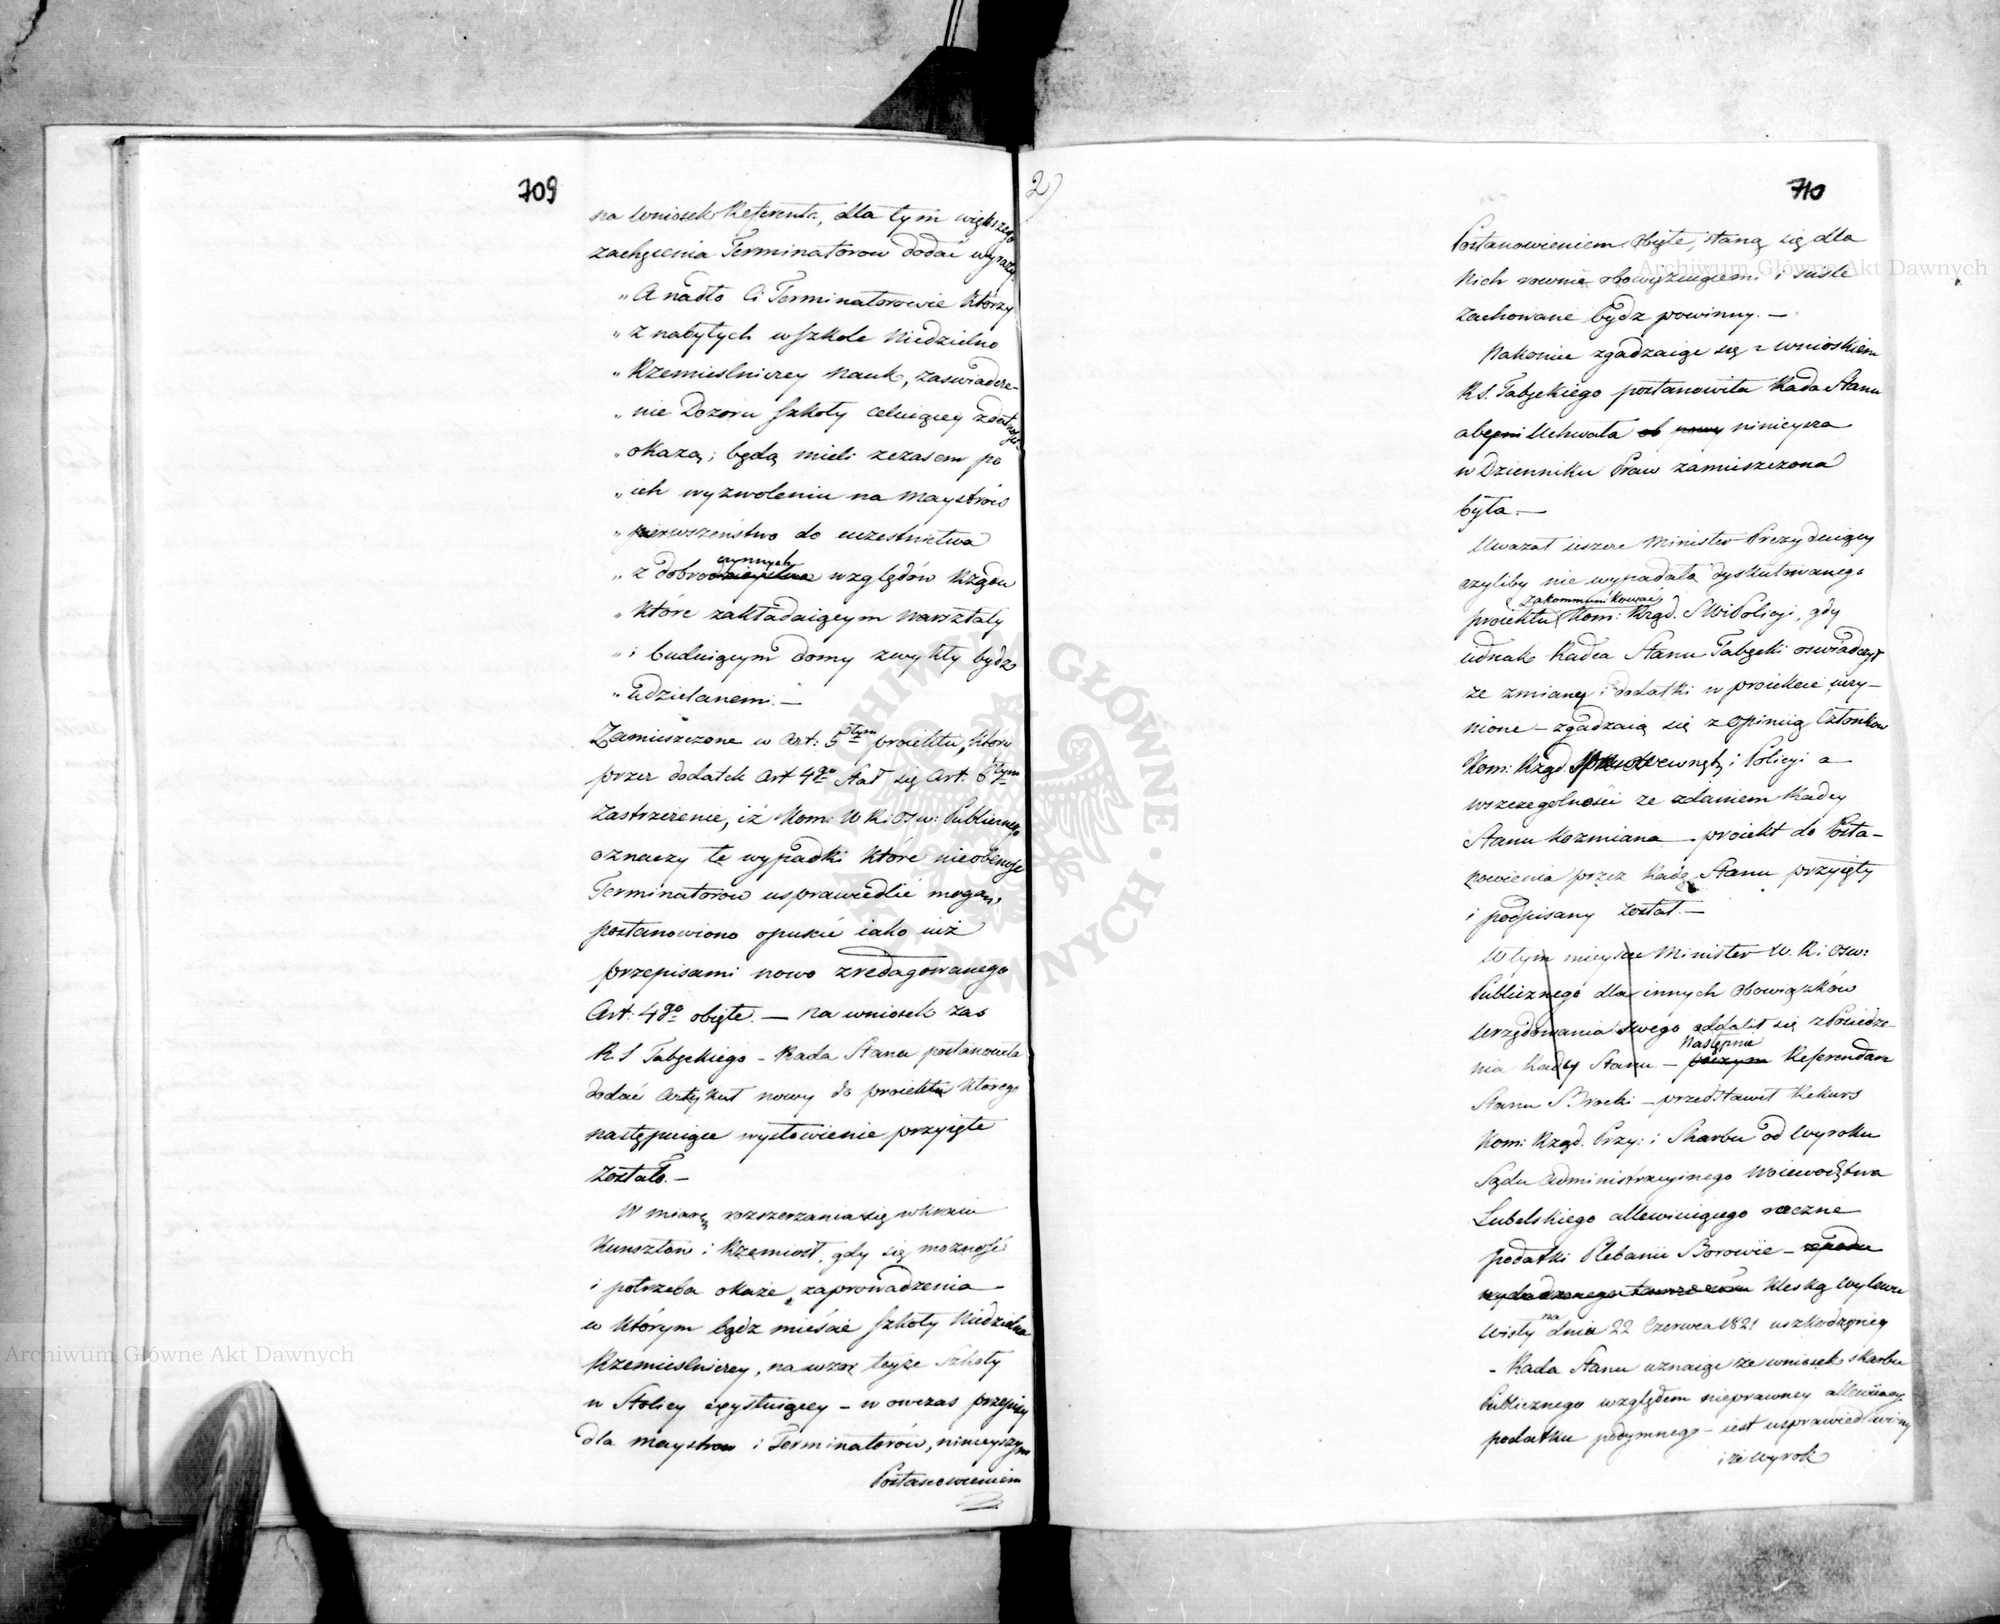 709
na wniosek Referenta, dla tym większego
zachęcenia Terminatorow dodać wyrazy.
„ A nadto Ci Terminatorowie którzy
„ z nabytych w Szkole Niedzielno
„ Rzemieslniczey nauk, zaswiadcze-
„ nie Dozoru Szkoły celuiącey zdatności
„ okażą; będą mieli z czasem po
„ ich wyzwoleniu na Maystrów
„ pierwszeństwo do uczestnictwa
„ z dobroczynnych względów Rządu
„ które zakładaiącym warsztaty
„ i buduiącym domy zwykły bydź
„ udzielanemi. —
Zamieszczone w Art: 5tym proiektu, który
przez dodatek Art 4go stał się Art. 6tym
Zastrzeżenie, iż Kom: W. R. i Osw: Publicznego
oznaczy te wypadki które nieobecność
Terminatorow usprawiedlić mogą,
postanowiono opuścić iako iuż
przepisami nowo zredagowanego
Art: 4go obięte. — Na wniosek zas
R. S Tabęckiego – Rada Stanu postanowiła
dodać Artykuł nowy do proiektu którego
następuiące wysłowienie przyięte
zostało. —
W miarę rozszerzania się w kraiu
Kunsztow i Rzemiosł, gdy się możność
i potrzeba okaże, zaprowadzenia
w którym bądz mieście Szkoły Niedzielno
Rzemieslniczey, na wzór teyże Szkoły
w Stolicy exystuiącey – w owczas przepisy
dla Maystrow i Terminatorów, ninieyszym
Postanowieniem
2)
710
Postanowieniem obięte, staną się dla
Nich rownie obowiązuiącemi i scisle
zachowane bydz powinny. —
Nakoniec zgadzaiąc się z wnioskiem
R. S. Tabęckiego postanowiła Rada Stanu
aby Uchwała ninieysza
w Dzienniku Praw zamieszczona
była. —
Uważał ieszcze Minister Prezyduiący
czyliby nie wypadało dyskutowanego
proiektu zakommunikować Kom: Rząd. S W i Policyi, gdy
iednak Radca Stanu Tabęcki oswiadczył
że zmiany i dodatki w proiekcie uczy-
nione – zgadzaią się z opinią Członkow
Kom: Rząd. Spraw Wewnętz i Policyi a
w szczegolności ze zdaniem Radcy
Stanu Kozmiana – proiekt do Posta-
nowienia przez Radę Stanu przyięty
i podpisany został. —
W tym mieyscu Minister W. R. i Osw:
Publicznego dla innych obowiązków
Urzędowania swego oddalił się z Posiedze-
nia Rady Stanu – poczym Następnie Referendarz
Stanu Brocki – przedstawił Rekurs
Kom: Rząd. Przy: i Skarbu od wyroku
Sądu Administracyinego Woiewodztwa
Lubelskiego allewiuiącego roczne
podatki Plebanii Borowie – klęską wylewu
Wisły na dniu 22 Czerwca 1821 uszkodzoney
– Rada Stanu uznaiąc że wniosek skarbu
Publicznego względem nieprawney allewiacyi
podatku podymnego – iest usprawiedliwiony
i że wyrok
Archiwum Główne Akt Dawnych
Archiwum Główne Akt Dawnych
ARCHIWUM GŁÓWNE AKT DAWNYCH